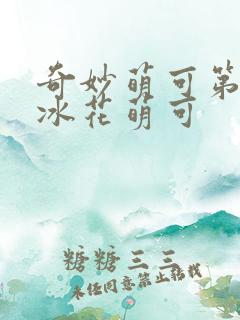 奇妙萌可第
冰花萌可
糖糖三三
未经同意禁止转载